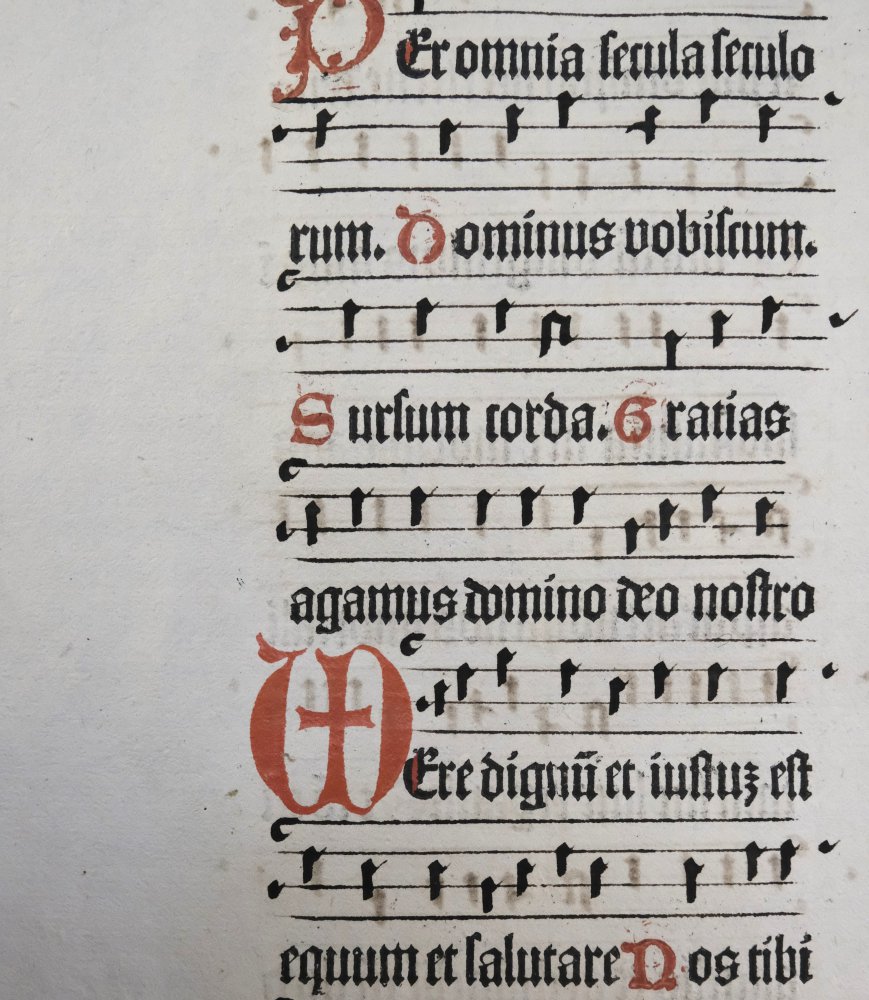 PEr omnia secula seculo
rum. Dominus vobiscum.
Sursum corda. Gratias
agamus domino deo nostro
VEre dignũ et iustuȝ est
equum et salutare Nos tibi